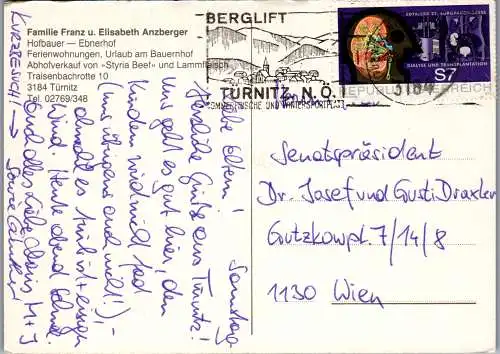 Familie Franz u. Elisabeth Anzberger
Hofbauer — Ebnerhof
Ferienwohnungen, Urlaub am Bauernhof
Abhofverkauf von »Styria Beef« und Lammfleisch
Traisenbachrotte 10
3184 Türnitz
Tel. 02769/348
BERGLIFT
TÜRNITZ, N.Ö.
SOMMERFRISCHE UND WINTERSPORTPLATZ
3184
DIALYSE UND TRANSPLANTATION
S7
REPUBLIK ÖSTERREICH
Senatspräsident
Dr. Josef und Gusti Draxler
Gutzkowpl. 7/14/8
1130 Wien
Samstag
Liebe Eltern!
Herzliche Grüße aus Türnitz!
Uns geht es gut hier, den
Kindern wird nie fad
(uns übrigens auch nicht!),
obwohl es
Wind. Heute abend
Euch alles Liebe M+J
KURZBESUCH! →